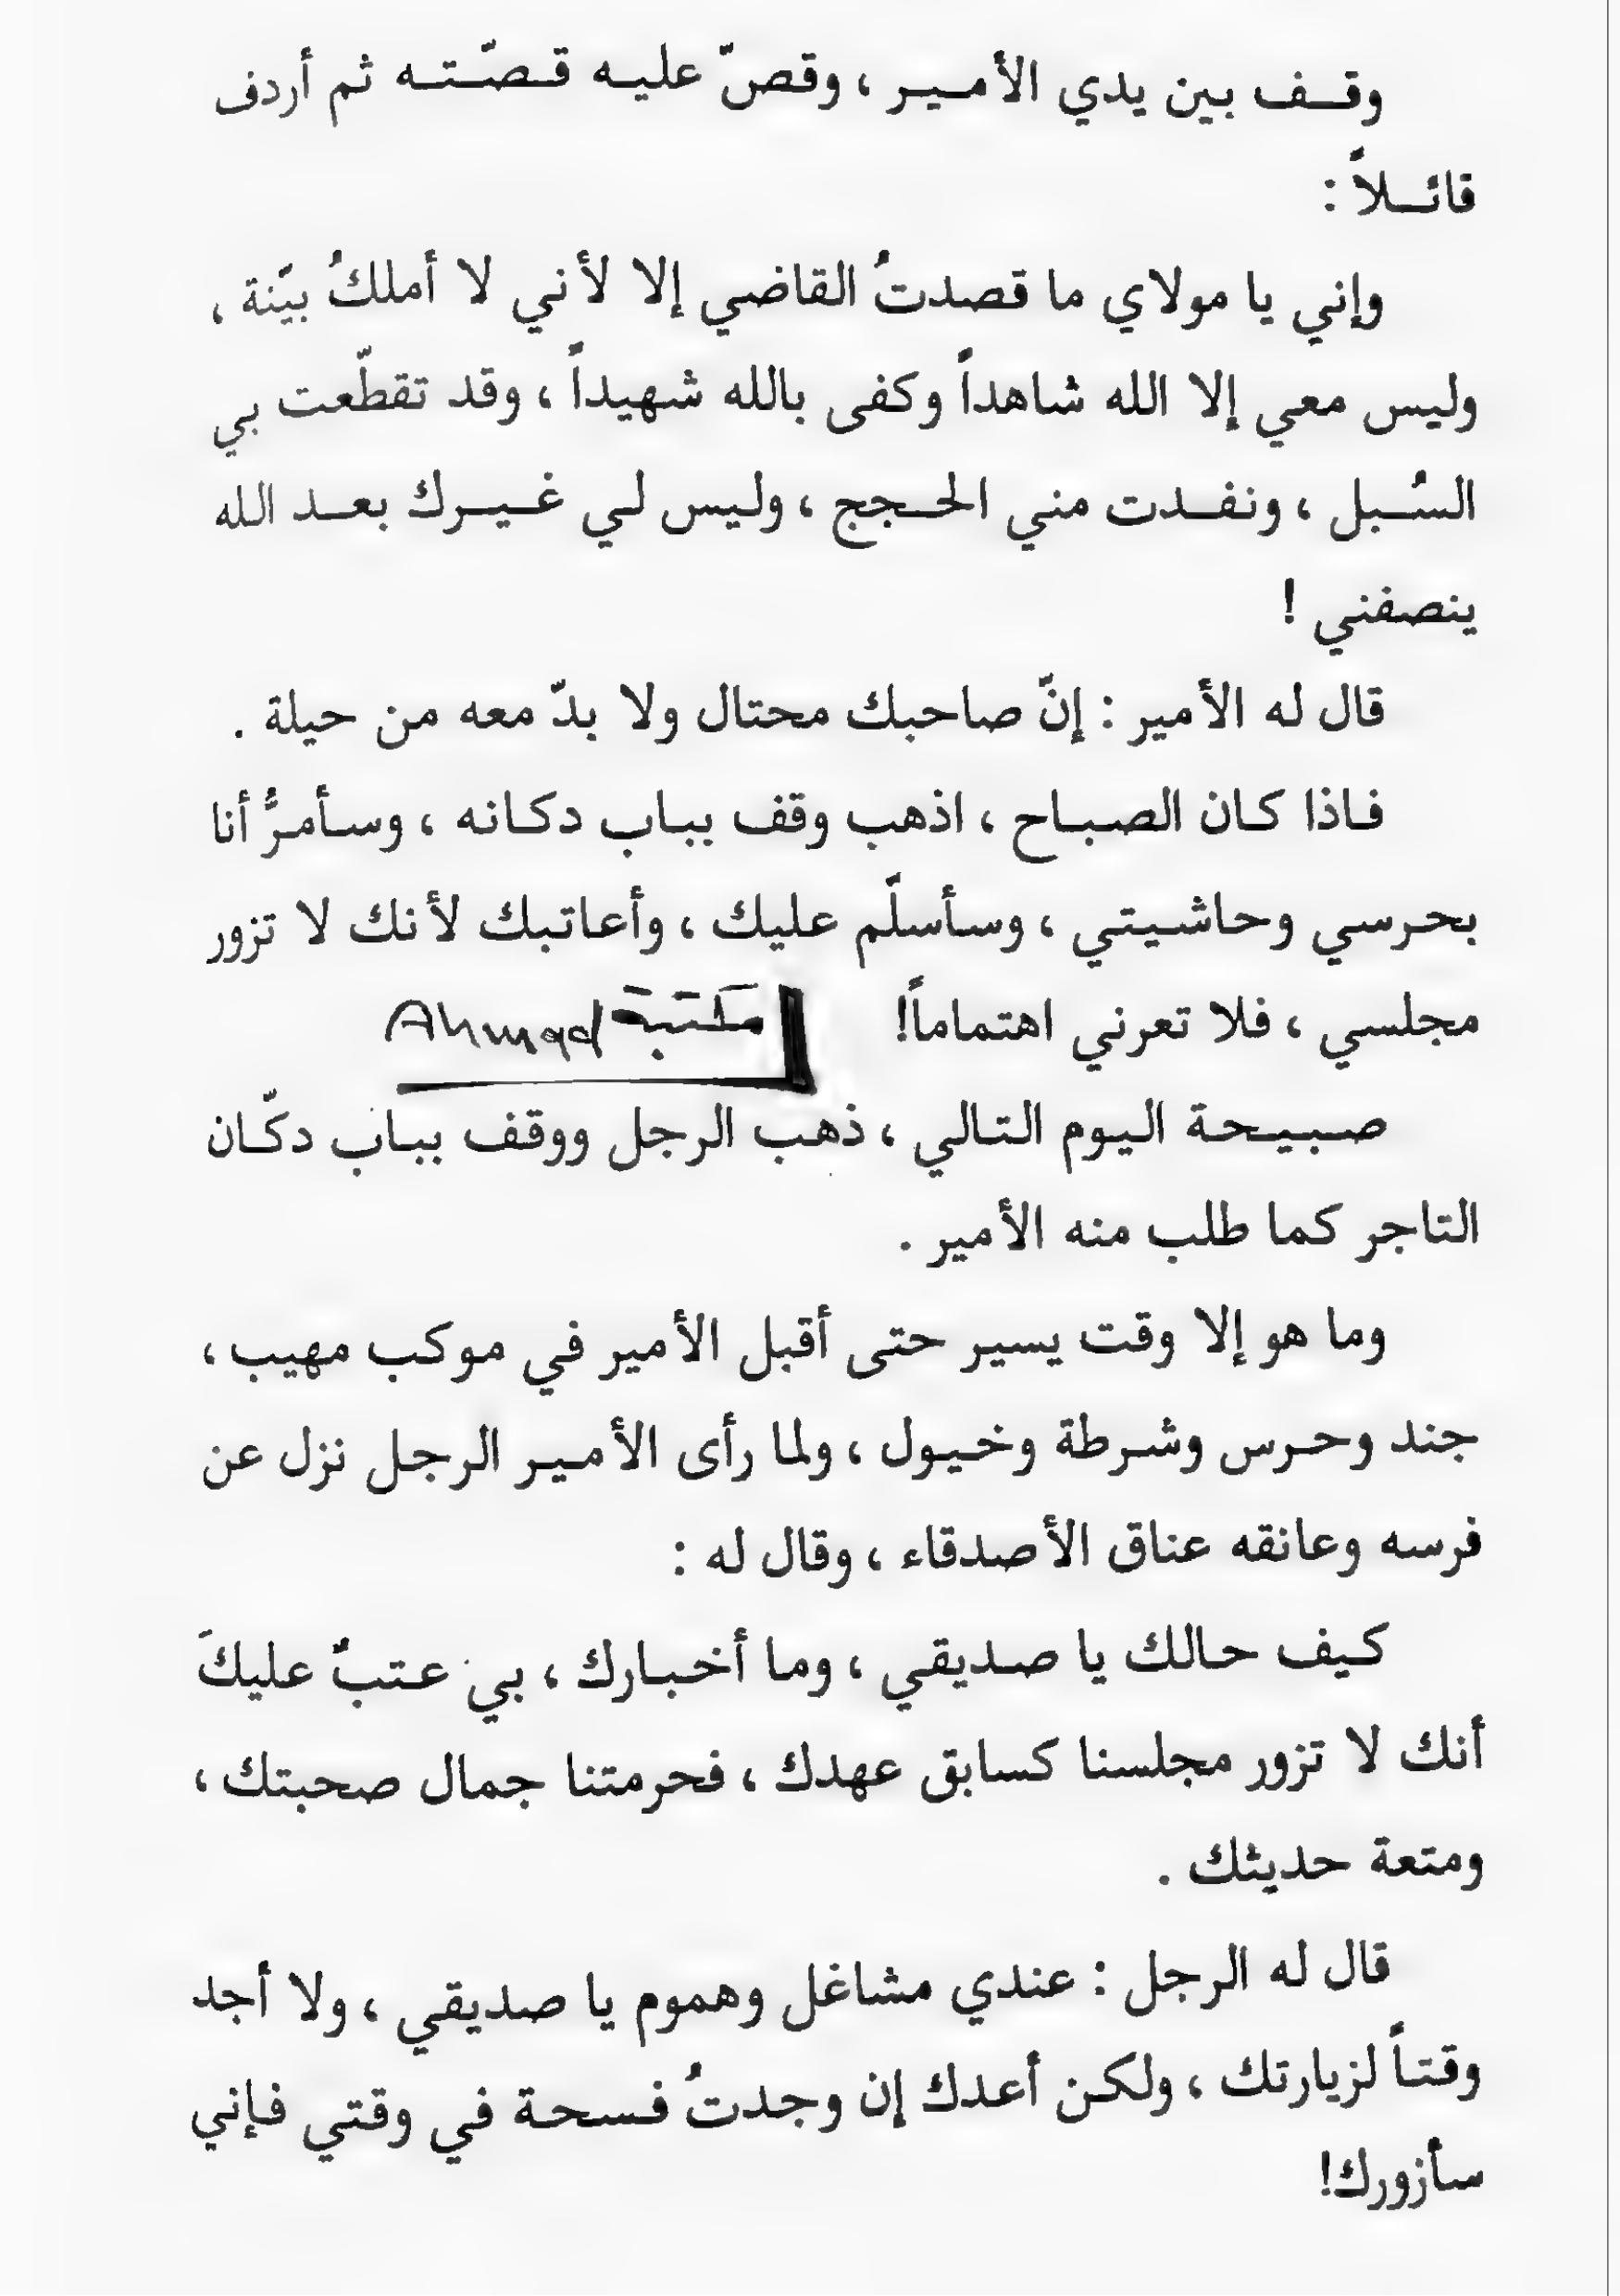 وقف بين يدي الأمير ، وقصّ عليه قصّته ثم أردف
قائلاً :
وإني يا مولاي ما قصدتُ القاضي إلا لأني لا أملكُ بيّنة ،
وليس معي إلا الله شاهداً وكفى بالله شهيداً ، وقد تقطّعت بي
السُبل ، ونفدت مني الحجج ، وليس لي غيرك بعد الله
ينصفني !
قال له الأمير : إنّ صاحبك محتال ولا بدّ معه من حيلة .
فاذا كان الصباح ، اذهب وقف بباب دكانه ، وسأمرُّ أنا
بحرسي وحاشيتي ، وسأسلّم عليك ، وأعاتبك لأنك لا تزور
مجلسي ، فلا تعرني اهتماماً!
مكتبة Ahmad
صبيحة اليوم التالي ، ذهب الرجل ووقف بباب دكّان
التاجر كما طلب منه الأمير .
وما هو إلا وقت يسير حتى أقبل الأمير في موكب مهيب ،
جند وحرس وشرطة وخيول ، ولما رأى الأمير الرجل نزل عن
فرسه وعانقه عناق الأصدقاء ، وقال له :
كيف حالك يا صديقي ، وما أخبارك ، بي عتبٌ عليكَ
أنك لا تزور مجلسنا كسابق عهدك ، فحرمتنا جمال صحبتك ،
ومتعة حديثك .
قال له الرجل : عندي مشاغل وهموم يا صديقي ، ولا أجد
وقتاً لزيارتك ، ولكن أعدك إن وجدتُ فسحة في وقتي فإني
سأزورك!